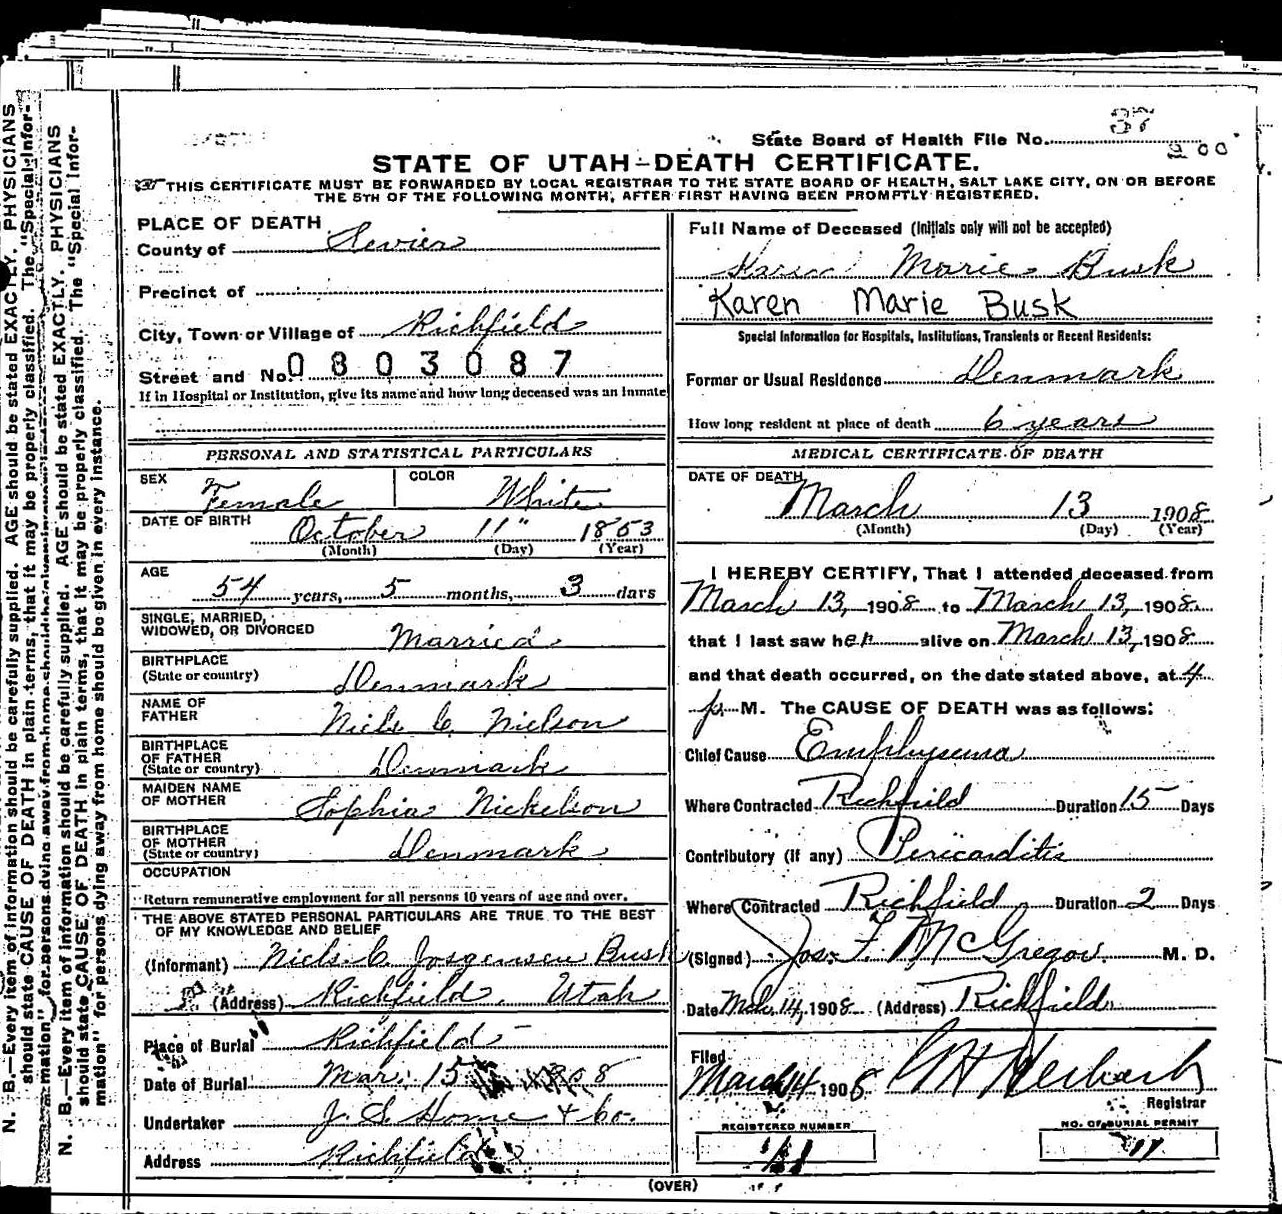 State Board of Health File No. 37
200
STATE OF UTAH—DEATH CERTIFICATE.
THIS CERTIFICATE MUST BE FORWARDED BY LOCAL REGISTRAR TO THE STATE BOARD OF HEALTH, SALT LAKE CITY, ON OR BEFORE
THE 5TH OF THE FOLLOWING MONTH, AFTER FIRST HAVING BEEN PROMPTLY REGISTERED.
PLACE OF DEATH
County of Sevier
Precinct of
City, Town or Village of Richfield
Street and No. 0803087
If in Hospital or Institution, give its name and how long deceased was an inmate
PERSONAL AND STATISTICAL PARTICULARS
SEX Female COLOR White
DATE OF BIRTH October 11" 1853
(Month) (Day) (Year)
AGE 54 years, 5 months, 3 days
SINGLE, MARRIED,
WIDOWED, OR DIVORCED Married
BIRTHPLACE
(State or country) Denmark
NAME OF
FATHER Niels C. Nielson
BIRTHPLACE
OF FATHER
(State or country) Denmark
MAIDEN NAME
OF MOTHER Sophia Nickelson
BIRTHPLACE
OF MOTHER
(State or country) Denmark
OCCUPATION
Return remunerative employment for all persons 10 years of age and over.
THE ABOVE STATED PERSONAL PARTICULARS ARE TRUE TO THE BEST
OF MY KNOWLEDGE AND BELIEF
(Informant) Niels C. Jorgensen Busk
(Address) Richfield, Utah
Place of Burial Richfield
Date of Burial Mar. 15 1908
Undertaker J. S. Horne & Co.
Address Richfield
Full Name of Deceased (Initials only will not be accepted)
Karen Marie Busk
Karen Marie Busk
Special Information for Hospitals, Institutions, Transients or Recent Residents:
Former or Usual Residence Denmark
How long resident at place of death 6 years
MEDICAL CERTIFICATE OF DEATH
DATE OF DEATH
March 13 1908
(Month) (Day) (Year)
I HEREBY CERTIFY, That I attended deceased from
March 13, 1908 to March 13, 1908
that I last saw her alive on March 13, 1908
and that death occurred, on the date stated above, at 4
p. M. The CAUSE OF DEATH was as follows:
Chief Cause Emphysema
Where Contracted Richfield Duration 15 Days
Contributory (if any) Pericarditis
Where Contracted Richfield Duration 2 Days
(Signed) Jos. F. McGregor M. D.
Date Mch 14, 1908 (Address) Richfield
Filed
March 14 1908
Registrar
REGISTERED NUMBER
NO. OF BURIAL PERMIT
11
(OVER)
N. B.—Every item of information should be carefully supplied. AGE should be stated EXACTLY. PHYSICIANS
should state CAUSE OF DEATH in plain terms, that it may be properly classified. The "Special Infor-
mation" for persons dying away from home should be given in every instance.
N. B.—Every item of information should be carefully supplied. AGE should be stated EXACTLY. PHYSICIANS
should state CAUSE OF DEATH in plain terms, that it may be properly classified. The "Special Infor-
mation" for persons dying away from home should be given in every instance.